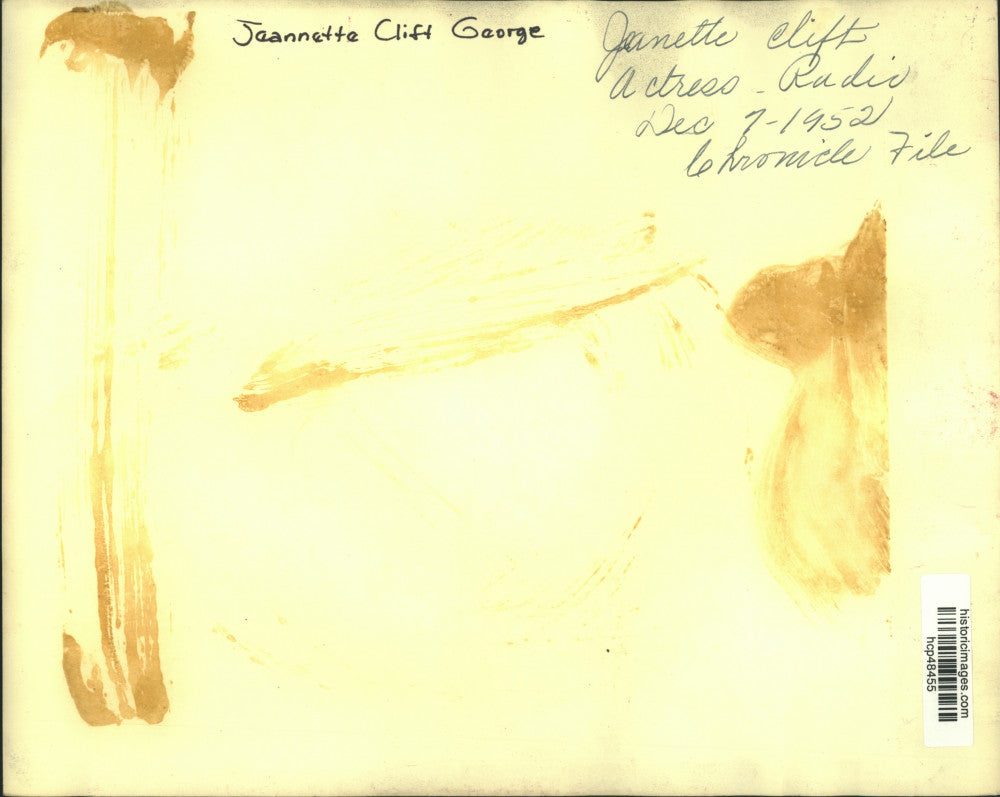 Jeannette Clift George
Jeanette Clift
Actress - Radio
Dec 7-1952
Chronicle File
historicimages.com
hcp48455